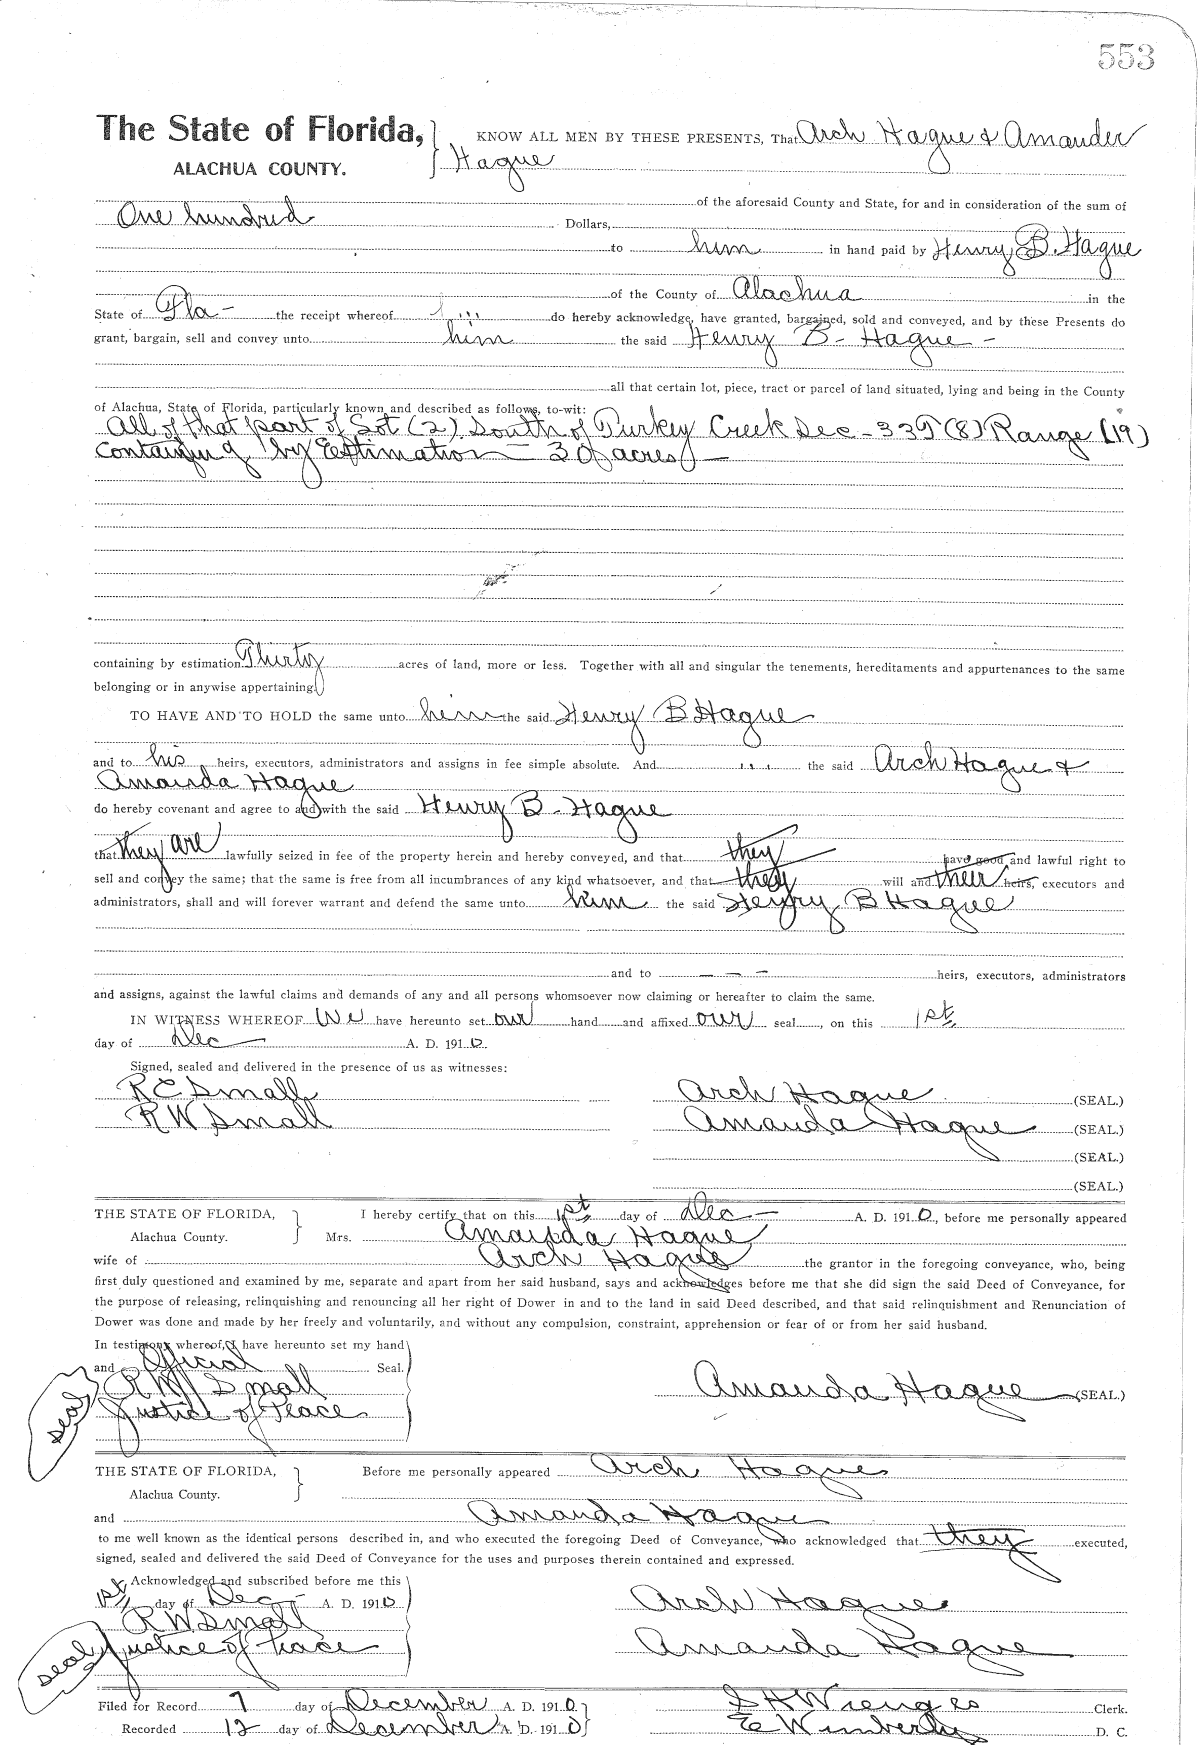 553
The State of Florida, KNOW ALL MEN BY THESE PRESENTS, That Arch Hague & Amander
ALACHUA COUNTY. Hague
of the aforesaid County and State, for and in consideration of the sum of
One hundred Dollars,
to him in hand paid by Henry B. Hague
of the County of Alachua in the
State of Fla- the receipt whereof do hereby acknowledge, have granted, bargained, sold and conveyed, and by these Presents do
grant, bargain, sell and convey unto him the said Henry B- Hague -
all that certain lot, piece, tract or parcel of land situated, lying and being in the County
of Alachua, State of Florida, particularly known and described as follows, to-wit:
All of that part of Lot (2) South of Turkey Creek Sec - 33 T (8) Range (19)
Containing by Estimation - 30 acres -
containing by estimation Thirty acres of land, more or less. Together with all and singular the tenements, hereditaments and appurtenances to the same
belonging or in anywise appertaining.
TO HAVE AND TO HOLD the same unto him the said Henry B Hague
and to his heirs, executors, administrators and assigns in fee simple absolute. And the said Arch Hague &
Amanda Hague
do hereby covenant and agree to and with the said Henry B - Hague
that they are lawfully seized in fee of the property herein and hereby conveyed, and that they have good and lawful right to
sell and convey the same; that the same is free from all incumbrances of any kind whatsoever, and that they will and their heirs, executors and
administrators, shall and will forever warrant and defend the same unto him the said Henry B Hague
and to — — — heirs, executors, administrators
and assigns, against the lawful claims and demands of any and all persons whomsoever now claiming or hereafter to claim the same.
IN WITNESS WHEREOF We have hereunto set our hand and affixed our seal, on this 1st
day of Dec A. D. 1910.
Signed, sealed and delivered in the presence of us as witnesses:
R E Small Arch Hague (SEAL.)
R W Small Amanda Hague (SEAL.)
(SEAL.)
(SEAL.)
THE STATE OF FLORIDA, I hereby certify that on this 1st day of Dec - A. D. 1910., before me personally appeared
Alachua County. Mrs. Amanda Hague
wife of Arch Hague the grantor in the foregoing conveyance, who, being
first duly questioned and examined by me, separate and apart from her said husband, says and acknowledges before me that she did sign the said Deed of Conveyance, for
the purpose of releasing, relinquishing and renouncing all her right of Dower in and to the land in said Deed described, and that said relinquishment and Renunciation of
Dower was done and made by her freely and voluntarily, and without any compulsion, constraint, apprehension or fear of or from her said husband.
In testimony whereof, I have hereunto set my hand
and Official Seal.
seal R W Small Amanda Hague (SEAL.)
Justice of Peace
THE STATE OF FLORIDA, Before me personally appeared Arch Hague
Alachua County.
and Amanda Hague
to me well known as the identical persons described in, and who executed the foregoing Deed of Conveyance, who acknowledged that they executed,
signed, sealed and delivered the said Deed of Conveyance for the uses and purposes therein contained and expressed.
Acknowledged and subscribed before me this
1st day of Dec - A. D. 1910 Arch Hague
R W Small
seal Justice of Peace Amanda Hague
Filed for Record 7 day of December A. D. 1910. S H Wienges Clerk.
Recorded 12 day of December A. D. 1910 E Wimberly D. C.